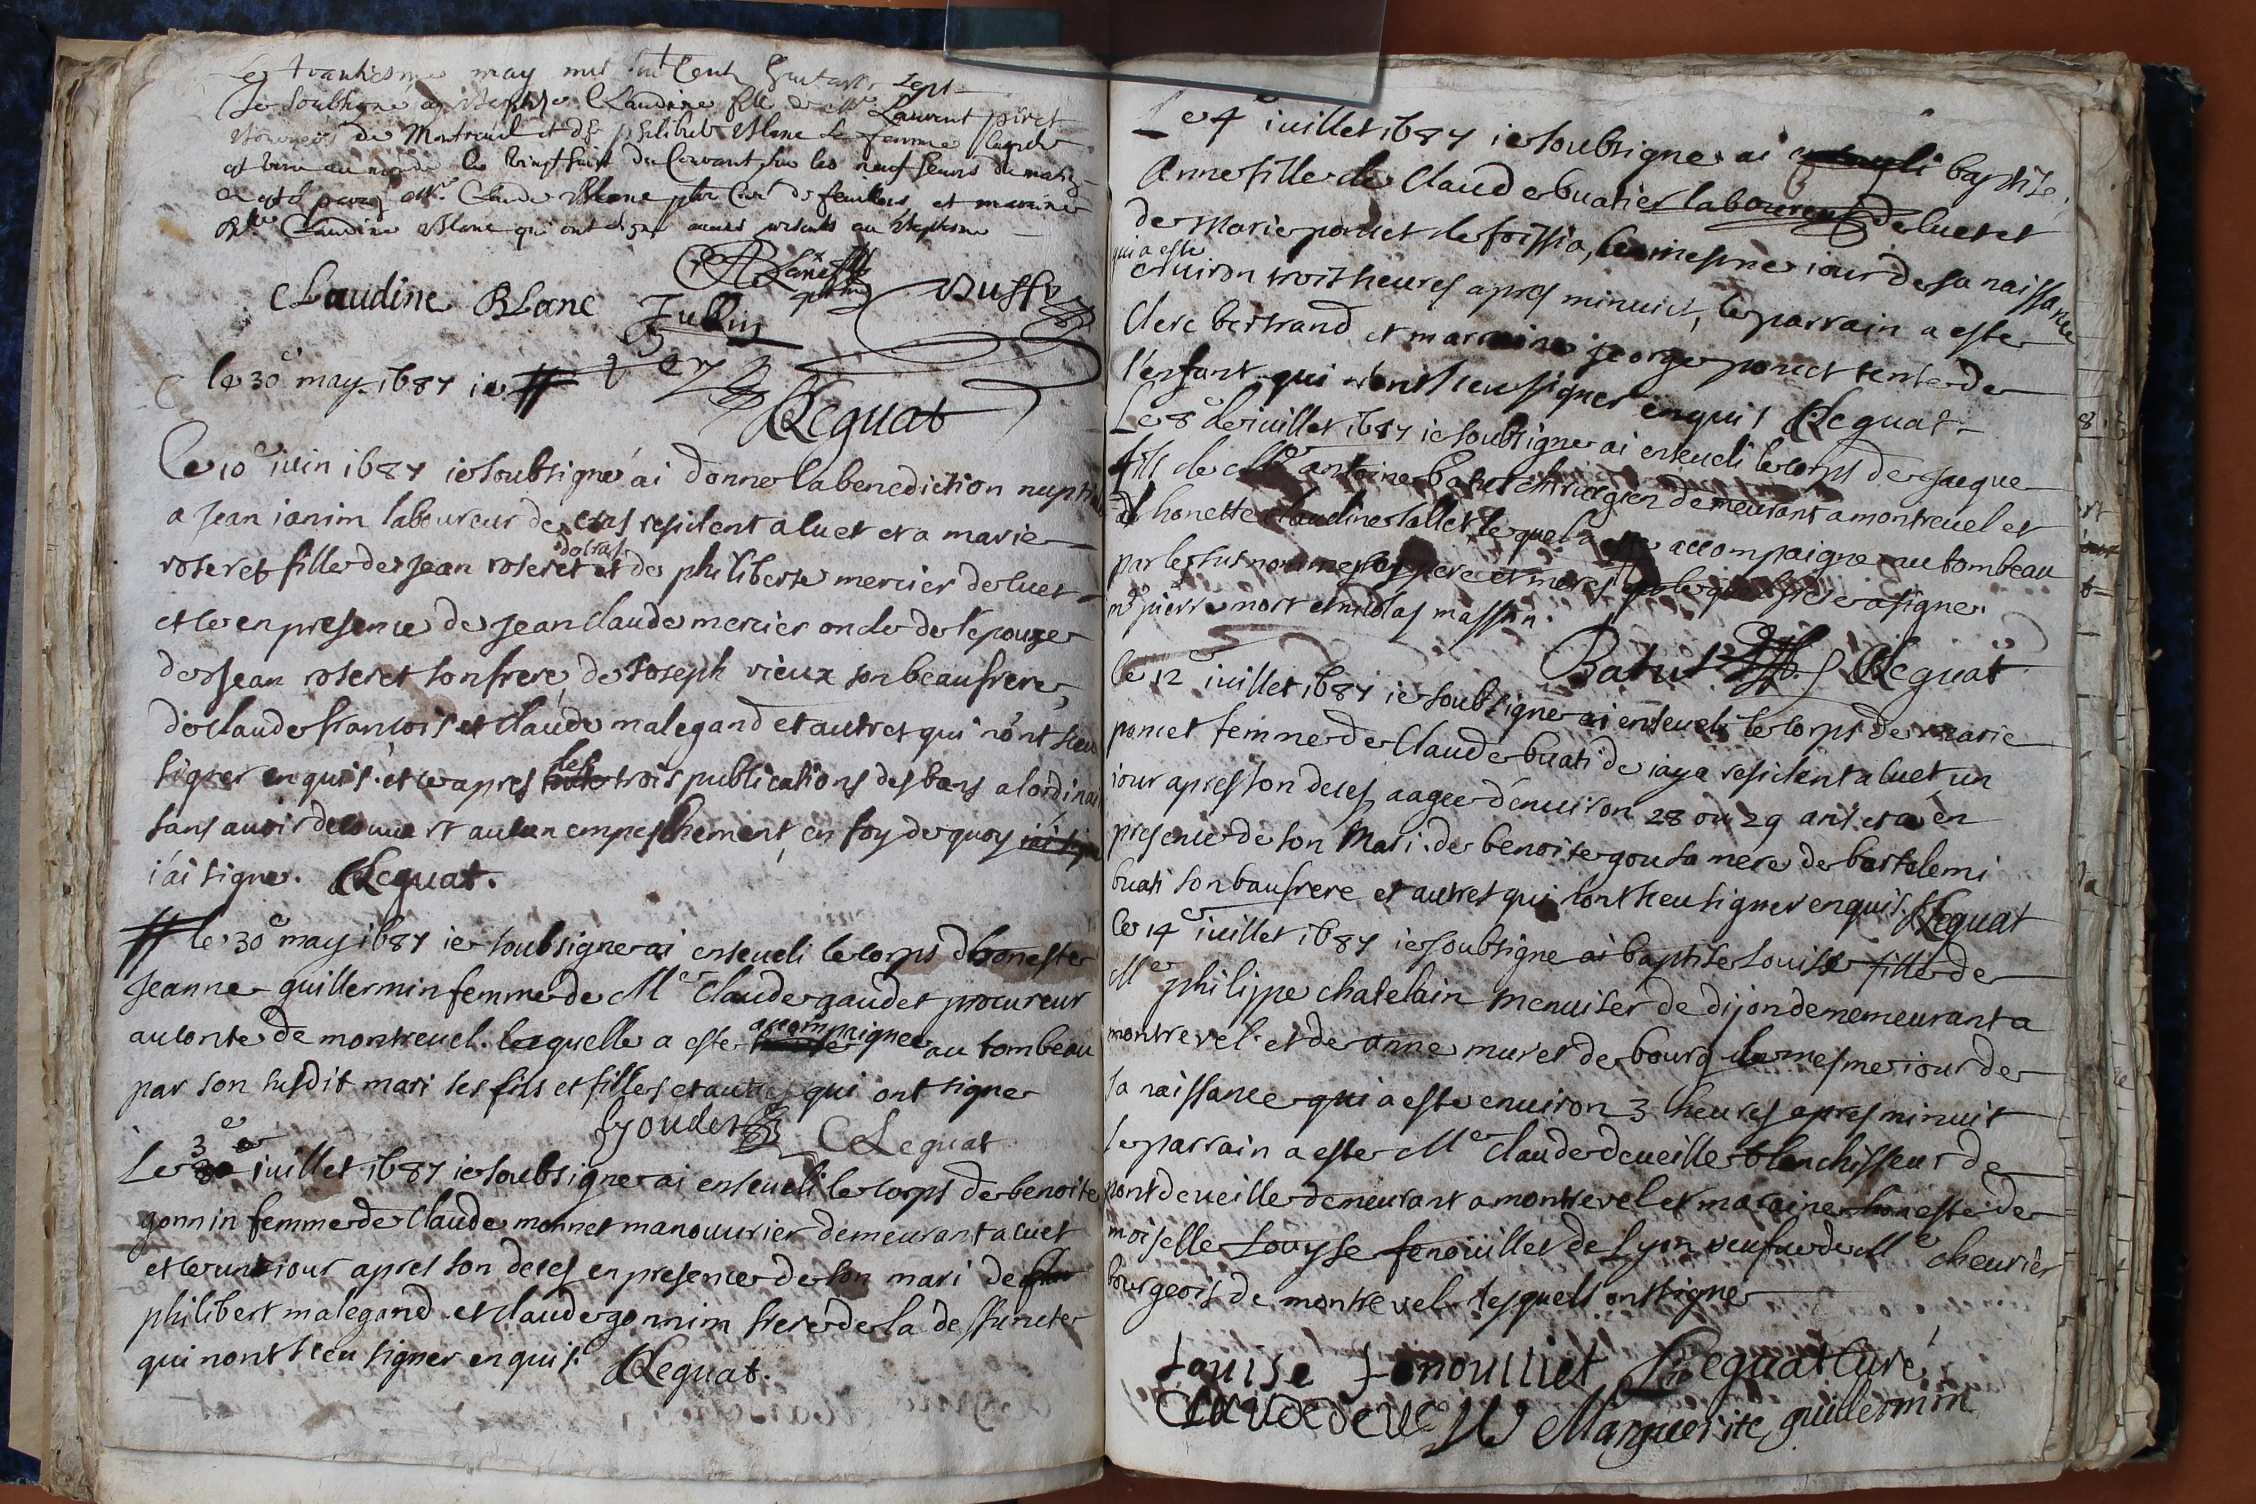 Le trantiesme may mil six Cent huictante sept
Je soubsigné ay baptisé Claudine fille de Mre Laurent piret
bourgeois de Montreuel et de philiberte Blanc sa femme laquelle
est venu au monde le vingt huict du Courant sur les neuf heures du matin
Claude Blanc et maraine
Claudine Blanc qui ont signe presents au baptesme
Claudine Blanc Jullin Buffy
le 30e may 1687 ie #
CLequat
Le 10e iuin 1687 ie soubsigné ai donne la benediction nuptia
a Jean ianim laboureur de cras resident a luet et a marie
roseret fille de Jean roseret et de philiberte mercier de luet
et ce en presence de Jean Claude mercier oncle de lepouze
de Jean roseret son frere, de Joseph vieux son beaufrere,
de Claude francois et Claude malegand et autres qui n'ont sceu
signer enquis. et ce apres les trois publications des bans a lordinai
sans avoir decouuert aucun empeschement, en foy de quoy
i'ai signe. CLequat.
# le 30e may 1687 ie soubsigne ai enseueli le corps dhoneste
Jeanne guillermin femme de Me Claude gaudet procureur
au conte de montreuel. laquelle a este accompaignee au tombeau
par son susdit mari ses fils et filles et autres qui ont signe
Goudet CLequat
Le 3e iuillet 1687 ie soubsigne ai enseueli le corps de benoite
gonnin femme de Claude monnet manouurier demeurant a luet
et ce un iour apres son deces en presence de son mari de
philibert malegand et claude gonnim frere de la deffuncte
qui nont sceu signer enquis. CLequat.
Le 4e iuillet 1687 ie soubsigne ai baptise
Anne fille de Claude buatier laboureur de luet et
de Marie poncet de foissia, le mesme iour de sa naissance
qui a este
enuiron trois heures apres minuict, le parrain a este
Clere bertrand et marraine george poncet tente de
l'enfant qui n'ont sceu signer enquis CLequat.
Le 8e de iuillet 1687 ie soubsigne ai enseueli le corps de Jacque
fils de Me antoine batut chirurgien demeurant a montreuel et
d honette claudine lallet, lequel a este accompaigne au tombeau
par les sus nommes ses pere et mere
me pierre mort et nicolas masson.
Batut CLequat
le 12e iuillet 1687 ie soubsigne ai enseueli le corps de marie
poncet femme de Claude buati de iaya resident a luet, un
iour apres son deces, aagee d'enuiron 28 ou 29 ans et a en
presence de son Mari. de benoite gou sa mere de bartelemi
buati son baufrere et autres qui nont sceu signer enquis. CLequat
le 14e iuillet 1687 ie soubsigne ai baptise Louise fille de
Me philippe chatelain menuiser de dijon demeurant a
montrevel. et de anne muret de bourg le mesme iour de
sa naissance qui a este enuiron 3 heures apres minuit
le parrain a este Me claude deueille blanchisseur de
pont de ueille demeurant a montrevel et maraine honeste de
moiselle Louyse fenouillet de Lyon veufue de Me cheurier
bourgeois de montrevel lesquels ont signe
Louise fenouilliet CLequat Curé
Marguerite guillermin